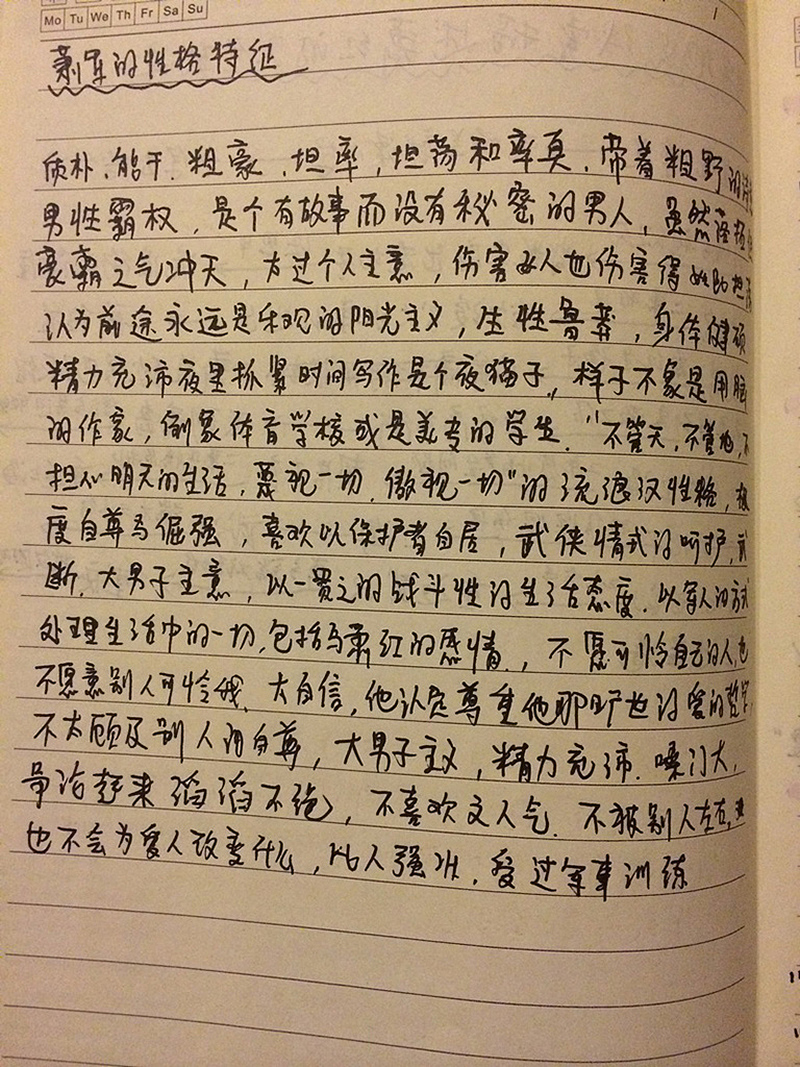 Mo Tu We Th Fr Sa Su
萧军的性格特征
质朴、能干、粗豪、坦率,坦荡和率真、带着粗野的
男性霸权,是个有故事而没有秘密的男人,虽然
豪霸之气冲天,大过个人主意,伤害女人也伤害得
认为前途永远是乐观的阳光主义,生性鲁莽,身体健硕
精力充沛夜里抓紧时间写作是个夜猫子,样子不象是用脑
的作家,倒象体育学校或是美专的学生."不管天,不管地,不
担心明天的生活,蔑视一切,傲视一切"的流浪汉性格,极
度自尊与倔强,喜欢以保护者自居,武侠情式的呵护,武
断,大男子主意,以一贯之的战斗性的生活态度.以军人的方式
处理生活中的一切,包括与萧红的感情.,不愿可怜自己的人,也
不愿意别人可怜我.太自信,他认定尊重他那 的爱的哲学,
不太顾及别人的自尊,大男子主义,精力充沛.嗓门大,
争论起来滔滔不绝,不喜欢文人气.不被别人左右,
也不会为爱人改变什么,比人强壮.受过军事训练